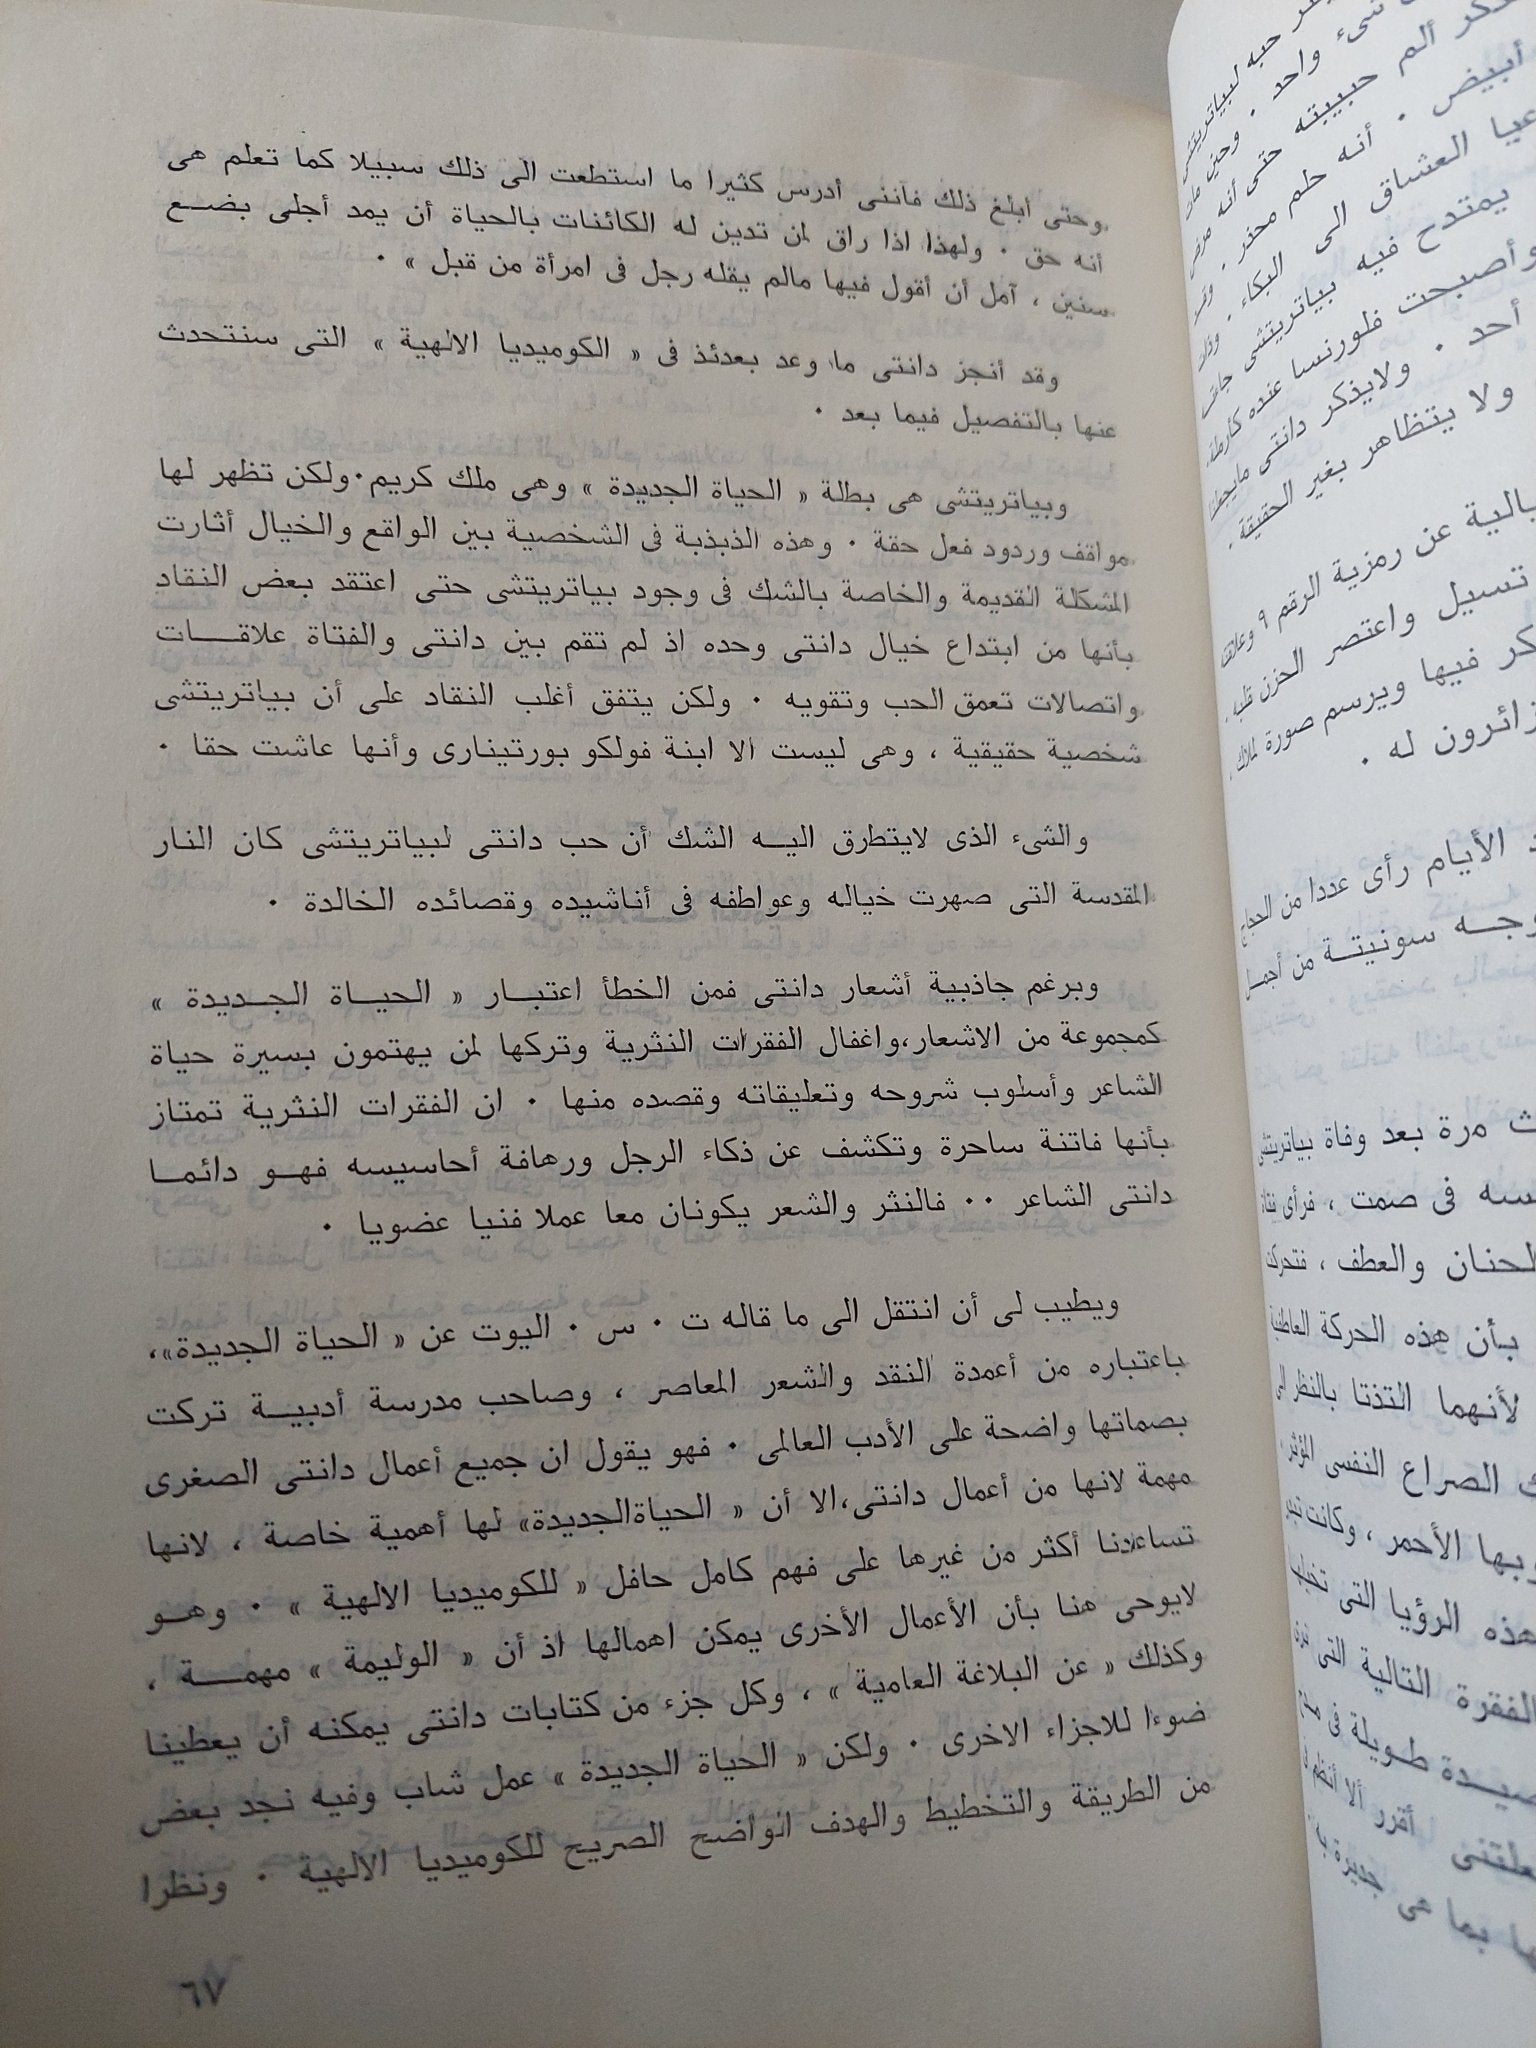 وحتى أبلغ ذلك فاننى أدرس كثيرا ما استطعت الى ذلك سبيلا كما تعلم هى
أنه حق ٠ ولهذا اذا راق لمن تدين له الكائنات بالحياة أن يمد أجلى بضـع
سنين ، آمل أن أقول فيها مالم يقله رجل فى امرأة من قبل » ٠
وقد أنجز دانتى ما وعد بعدئذ فى « الكوميديا الالهية » التى سنتحدث
عنها بالتفصيل فيما بعد ٠
وبياتريتشى هى بطلة « الحياة الجديدة » وهى ملك كريم٠ولكن تظهر لها
مواقف وردود فعل حقة ٠ وهذه الذبذبة فى الشخصية بين الواقع والخيال أثارت
المشكلة القديمة والخاصة بالشك فى وجود بياتريتشى حتى اعتقد بعض النقاد
بأنها من ابتداع خيال دانتى وحده اذ لم تقم بين دانتى والفتاة علاقـــات
واتصالات تعمق الحب وتقويه ٠ ولكن يتفق أغلب النقاد على أن بياتريتشى
شخصية حقيقية ، وهى ليست الا ابنة فولكو بورتينارى وأنها عاشت حقا ٠
والشىء الذى لايتطرق اليــه الشك أن حب دانتى لبياتريتشى كان النار
المقدسة التى صهرت خياله وعواطفه فى أناشيده وقصائده الخالدة ٠
وبرغم جاذبية أشعار دانتى فمن الخطأ اعتبــار « الحيــاة الجــديدة »
كمجموعة من الاشعار،واغفال الفقرات النثرية وتركها لمن يهتمون بسيرة حياة
الشاعر وأسلوب شروحه وتعليقاته وقصده منها ٠ ان الفقرات النثرية تمتاز
بأنها فاتنة ساحرة وتكشف عن ذكاء الرجل ورهافة أحاسيسه فهــو دائمــا
دانتى الشاعر ٠٠ فالنثر والشعر يكونان معا عملا فنيا عضويا ٠
ويطيب لى أن انتقل الى ما قاله ت ٠ س ٠ اليوت عن « الحياة الجديدة»،
باعتباره من أعمدة النقد والشعر المعاصر ، وصاحب مدرسة أدبيــة تركت
بصماتها واضحة على الأدب العالمى ٠ فهو يقول ان جميع أعمال دانتى الصغرى
مهمة لانها من أعمال دانتى،الا أن « الحياةالجديدة» لها أهمية خاصة ، لانها
تساعدنا أكثر من غيرها على فهم كامل حافل « للكوميديا الالهية » ٠ وهــو
لايوحى هنا بأن الأعمال الأخرى يمكن اهمالها اذ أن « الوليمة » مهمـــة ،
وكذلك « عن البلاغة العامية » ، وكل جزء من كتابات دانتى يمكنه أن يعطينا
ضوءا للاجزاء الاخرى ٠ ولكن « الحياة الجديدة » عمل شاب وفيه نجد بعض
من الطريقة والتخطيط والهدف الواضح الصريح للكوميديا الالهية ٠ ونظرا
٦٧
حبه لبياتريتشى
شىء واحد ٠ وحين مات
ألم حبيبته حتى أنه مرض
أبيض ٠ أنه حلم محذر ٠
العشاق الى البكاء ٠
يمتدح فيه بياتريتشى
وأصبحت فلورنسا عنده
أحد ٠ ولايذكر دانتى
ولا يتظاهر بغير الحقيقة ٠
عن رمزية الرقم ٩
تسيل واعتصر الحزن قلبه ٠
فيها ويرسم صورة لملاك ،
له ٠
الأيام رأى عددا من الحجاج
سونيتــة من أجمــل
مرة بعد وفاة بياتريتشى
فى صمت ، فرأى
والعطف ، فتحركت
بأن هذه الحركة العاطفية
لأنهما التذتا بالنظر الى
الصراع النفسى المؤثر
الأحمر ، وكانت
هذه الرؤيا التى
الفقرة التالية التى
طويلة فى
أقرر ألا
بما هى جديرة